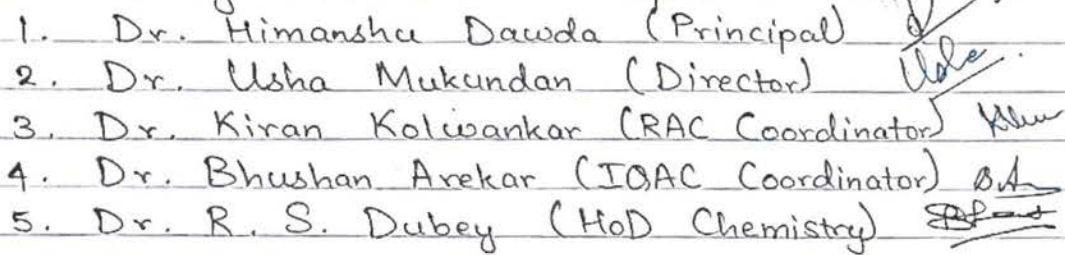 1. Dr. Himanshu Dawda (Principal)
2. Dr. Usha Mukundan (Director)
3. Dr. Kiran Kolwankar (RAC Coordinator)
4. Dr. Bhushan Arekar (IQAC Coordinator)
5. Dr. R. S. Dubey (HoD Chemistry)